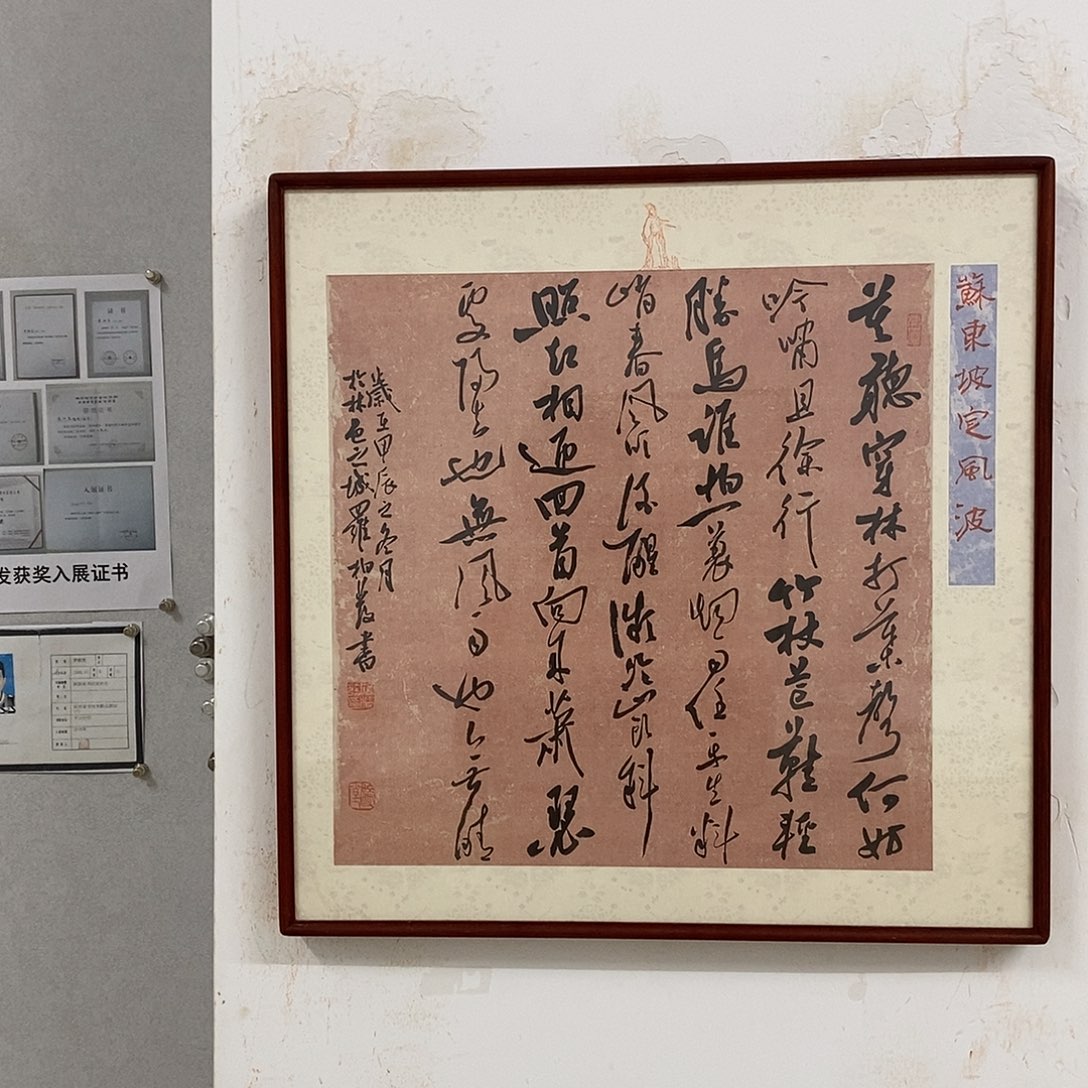 蘇東坡定風波
莫聽穿林打葉聲何妨
吟嘯且徐行竹杖芒鞋輕
勝馬誰怕一蓑烟雨任平生料
峭春風吹酒醒微冷山頭斜
照却相迎回首向來蕭瑟
處歸去也無風雨也无晴
歲在甲辰之冬月
於林邑之城羅柏書
证书
入展证书
发获奖入展证书